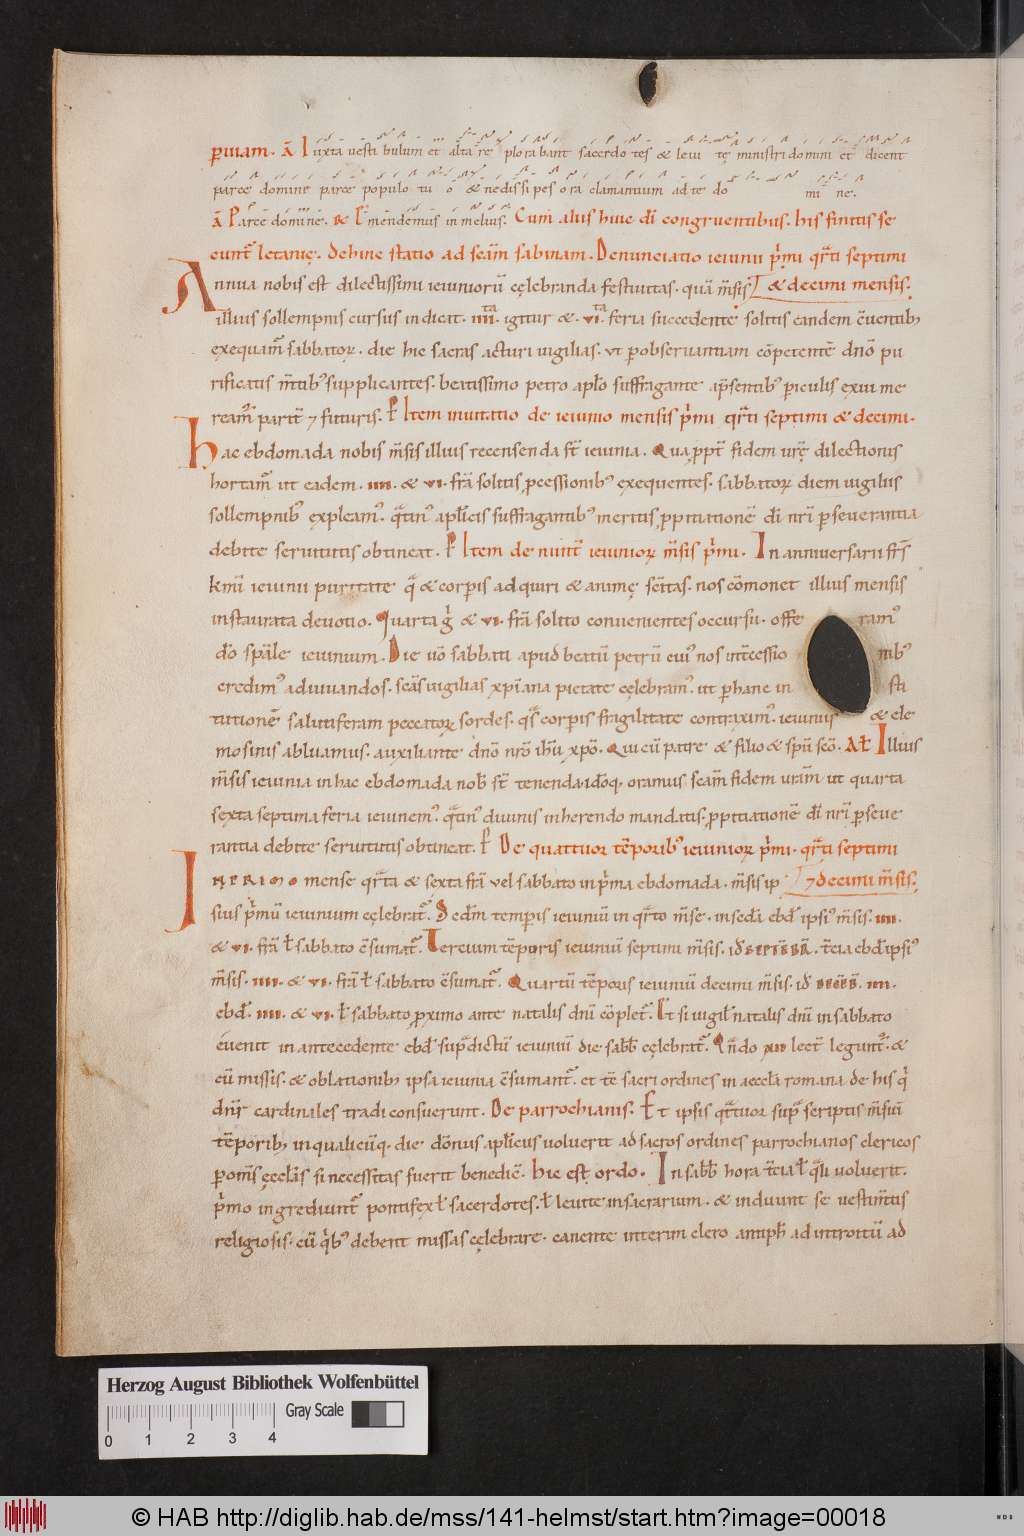 p uiam. ā Iuxta uestibulum et altare plorabant sacerdotes & leuitę ministri domini et dicent
parce domine parce populo tuo & ne dissipes ora clamantium ad te domine.
ā Parce domine. & Emendemus in melius. Cum aliis huic dī congruentibus. his finitis se
cunt̄ letanię. dehinc statio ad scām sabinam. Denunciatio ieiunii p̄mi qr̄ti septimi
Annua nobis est dilectissimi ieiuniorū cęlebranda festiuitas. quā m̄sis & decimi mensis.
illius sollempnis cursus indicat. IIII.ta igitur & VI.ta feria succedente solitis eandem c̄uentibꝰ
exequam̄ sabbatoꝝ. die hic sacras acturi uigilias. ut p obseruantiam cōpetentē dnō pu
rificatis m̄tibꝰ supplicantes. beatissimo petro aplō suffragante a p̄sentibꝰ periculis exui me
ream̄ parit̄ ⁊ futuris. Item inuitatio de ieiunio mensis p̄mi qr̄ti septimi & decimi.
Hac ebdomada nobis m̄sis illius recensenda st̄ ieiunia. Qua ppt̄ fidem urę̄ dilectionis
hortam̄ ut eadem. IIII. & VI. fr̄ā solitis pcessionibꝰ exequentes. sabbatoꝝ diem uigiliis
sollempnibꝰ expleamꝰ. q̄tinꝰ aplicis suffragantibꝰ meritis. ppitiationē dī nr̄i pseuerantia
debite seruitutis obtineat. Item de nunt̄ ieiunioꝝ m̄sis p̄mi. In anniuersarii fr̄s
kmī ieiunii puritate q̄ & corpis adquiri & animę sc̄itas. nos cōmonet illius mensis
instaurata deuotio. Quarta g̊ & VI. fr̄ā solito conuenientes occursu. offe ramꝰ
dō spāle ieiunium. Die uō sabbati apud beatū petrū cuiꝰ nos int̄cessio nibꝰ
credimꝰ adiuuandos. scās uigilias xpīana pietate cęlebramꝰ. ut p hanc in sti
tutionē salutiferam peccatoꝝ sordes. q̄s corpis fragilitate contraximꝰ. ieiuniis & ele
mosinis abluamus. auxiliante dnō nrō ihū xpō. Qui cū patre & filio & spū scō. Al Illius
m̄sis ieiunia in hac ebdomada nob̄ st̄ tenenda. idōq; oramus. scām fidem urām ut quarta
sexta septima feria ieiunemꝰ. q̄tinꝰ diuinis inherendo mandatis. ppitiationē dī nr̄i pseue
rantia debite seruitutis obtineat. De quattuor tēporibꝰ ieiunioꝝ p̄mi. qr̄ti septimi
IN PRIMO mense qr̄ta & sexta fr̄ā vel sabbato in p̄ma ebdomada. m̄sis ip ⁊ decimi m̄sis.
sius p̄mū ieiunium cęlebrat̄. Sedm̄ temporis ieiuniū in qr̄to m̄se. in secd̄a ebd̄ ipsiꝰ m̄sis. IIII.
& VI. fr̄ā ł sabbato c̄sumat̄. Tercium tēporis ieiuniū septimi m̄sis. id̄ SEPTĒBR̄. t̄cia ebd̄ ipsiꝰ
m̄sis. IIII. & VI. fr̄ā ł sabbato c̄sumat̄. Quartū tēporis ieiuniū decimi m̄sis. id̄ DECĒB̄. IIII.
ebd̄. IIII. & VI. ł sabbato proximo ante natalis dnī cōplet̄. Et si uigił natalis dnī in sabbato
euenit in antecedente ebd̄ sup̄dictū ieiuniū die sabb̄ cęlebrat̄. Qn̄do XII lect̄ legunt̄. &
cū missis. & oblationibꝰ ipsa ieiunia c̄sumant̄. et tē sacri ordines in aeccl̄a romana de his q̄
dn̄r cardinales tradi consuerunt. De parrochianis. Et ipsis q̄ttuor sup̄ scriptis m̄siū
tēporibꝰ in qualicūq. die dōnus aplicus uoluerit ad sacros ordines parrochianos clericos
p om̄s ęccl̄as si necessitas fuerit benedic̄. hic est ordo. In sabb̄ hora t̄cia ł q̄li uoluerit.
p̄mo ingrediunt̄ pontifex ł sacerdotes. ł leuite in sacrarium. & induunt se uestim̄tis
religiosis. cū q̄bꝰ debent missas cęlebrare. canente interim clero antiph̄ ad introitū ad
Herzog August Bibliothek Wolfenbüttel
Gray Scale
0 1 2 3 4
© HAB http://diglib.hab.de/mss/141-helmst/start.htm?image=00018